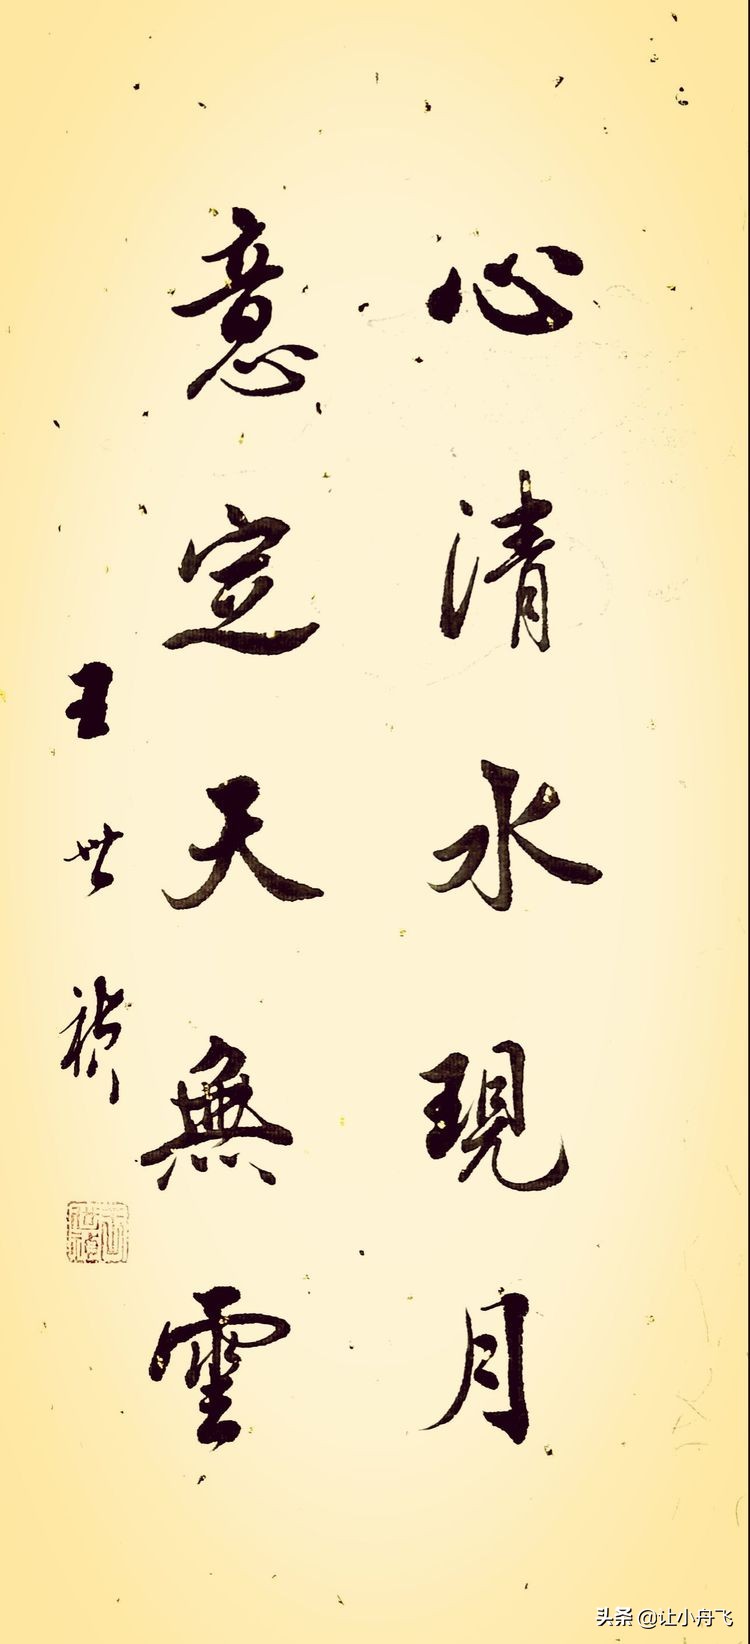 心清水現月
意定天無雲
王世禎
头条 @让小舟飞